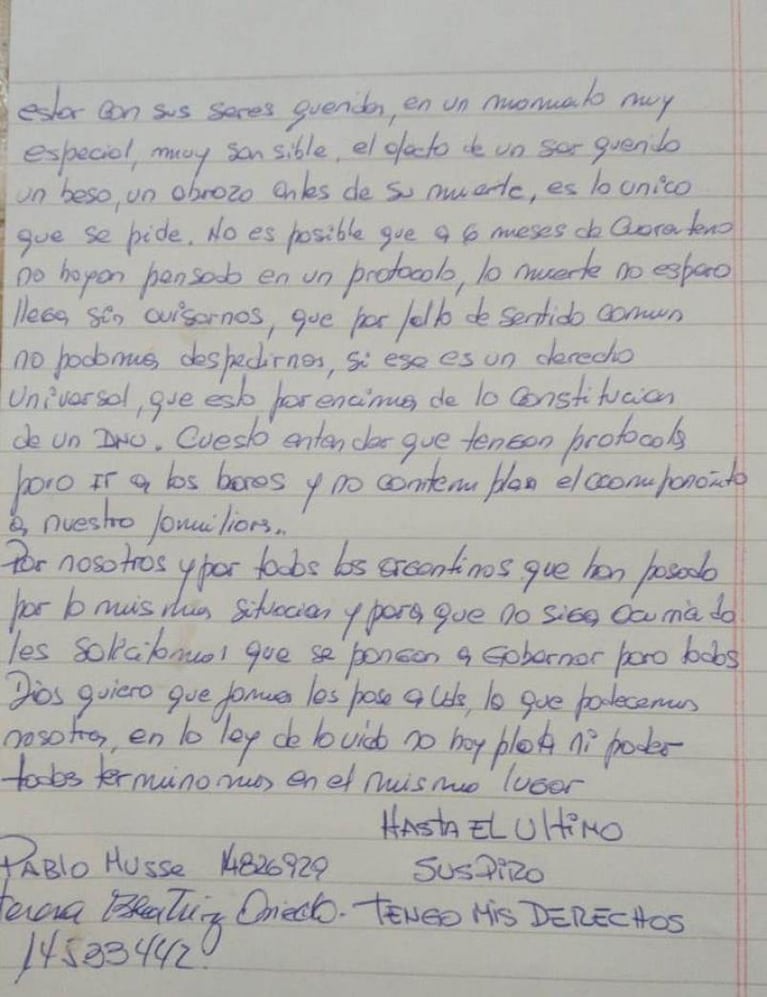 estar con sus seres queridos, en un momento muy
especial, muy sensible, el afecto de un ser querido
un beso, un abrazo antes de su muerte, es lo unico
que se pide. No es posible que a 6 meses de Cuarentena
no hayan pensado en un protocolo, la muerte no espera
llega sin avisarnos, que por falta de sentido comun
no podamos despedirnos, si ese es un derecho
Universal, que esta por encima de la Constitucion
de un DNU. Cuesta entender que tengan protocolos
para Ir a los bares y no contemplan el acompañamiento
a nuestro familiars..
Por nosotros y por todos los argentinos que han pasado
por la misma situacion y para que no siga ocurriendo
les solicitamos que se pongan a Gobernar para todos
Dios quiera que jamas les pase a Uds, lo que padecemos
nosotros, en la ley de la vida no hay plata ni poder
todos terminamos en el mismo lugar
HASTA EL UltiMO
PABLO MUSSE 14826929 SUSPIRO
Beatriz Oviedo. TENGO MIS DERECHOS
14533442.